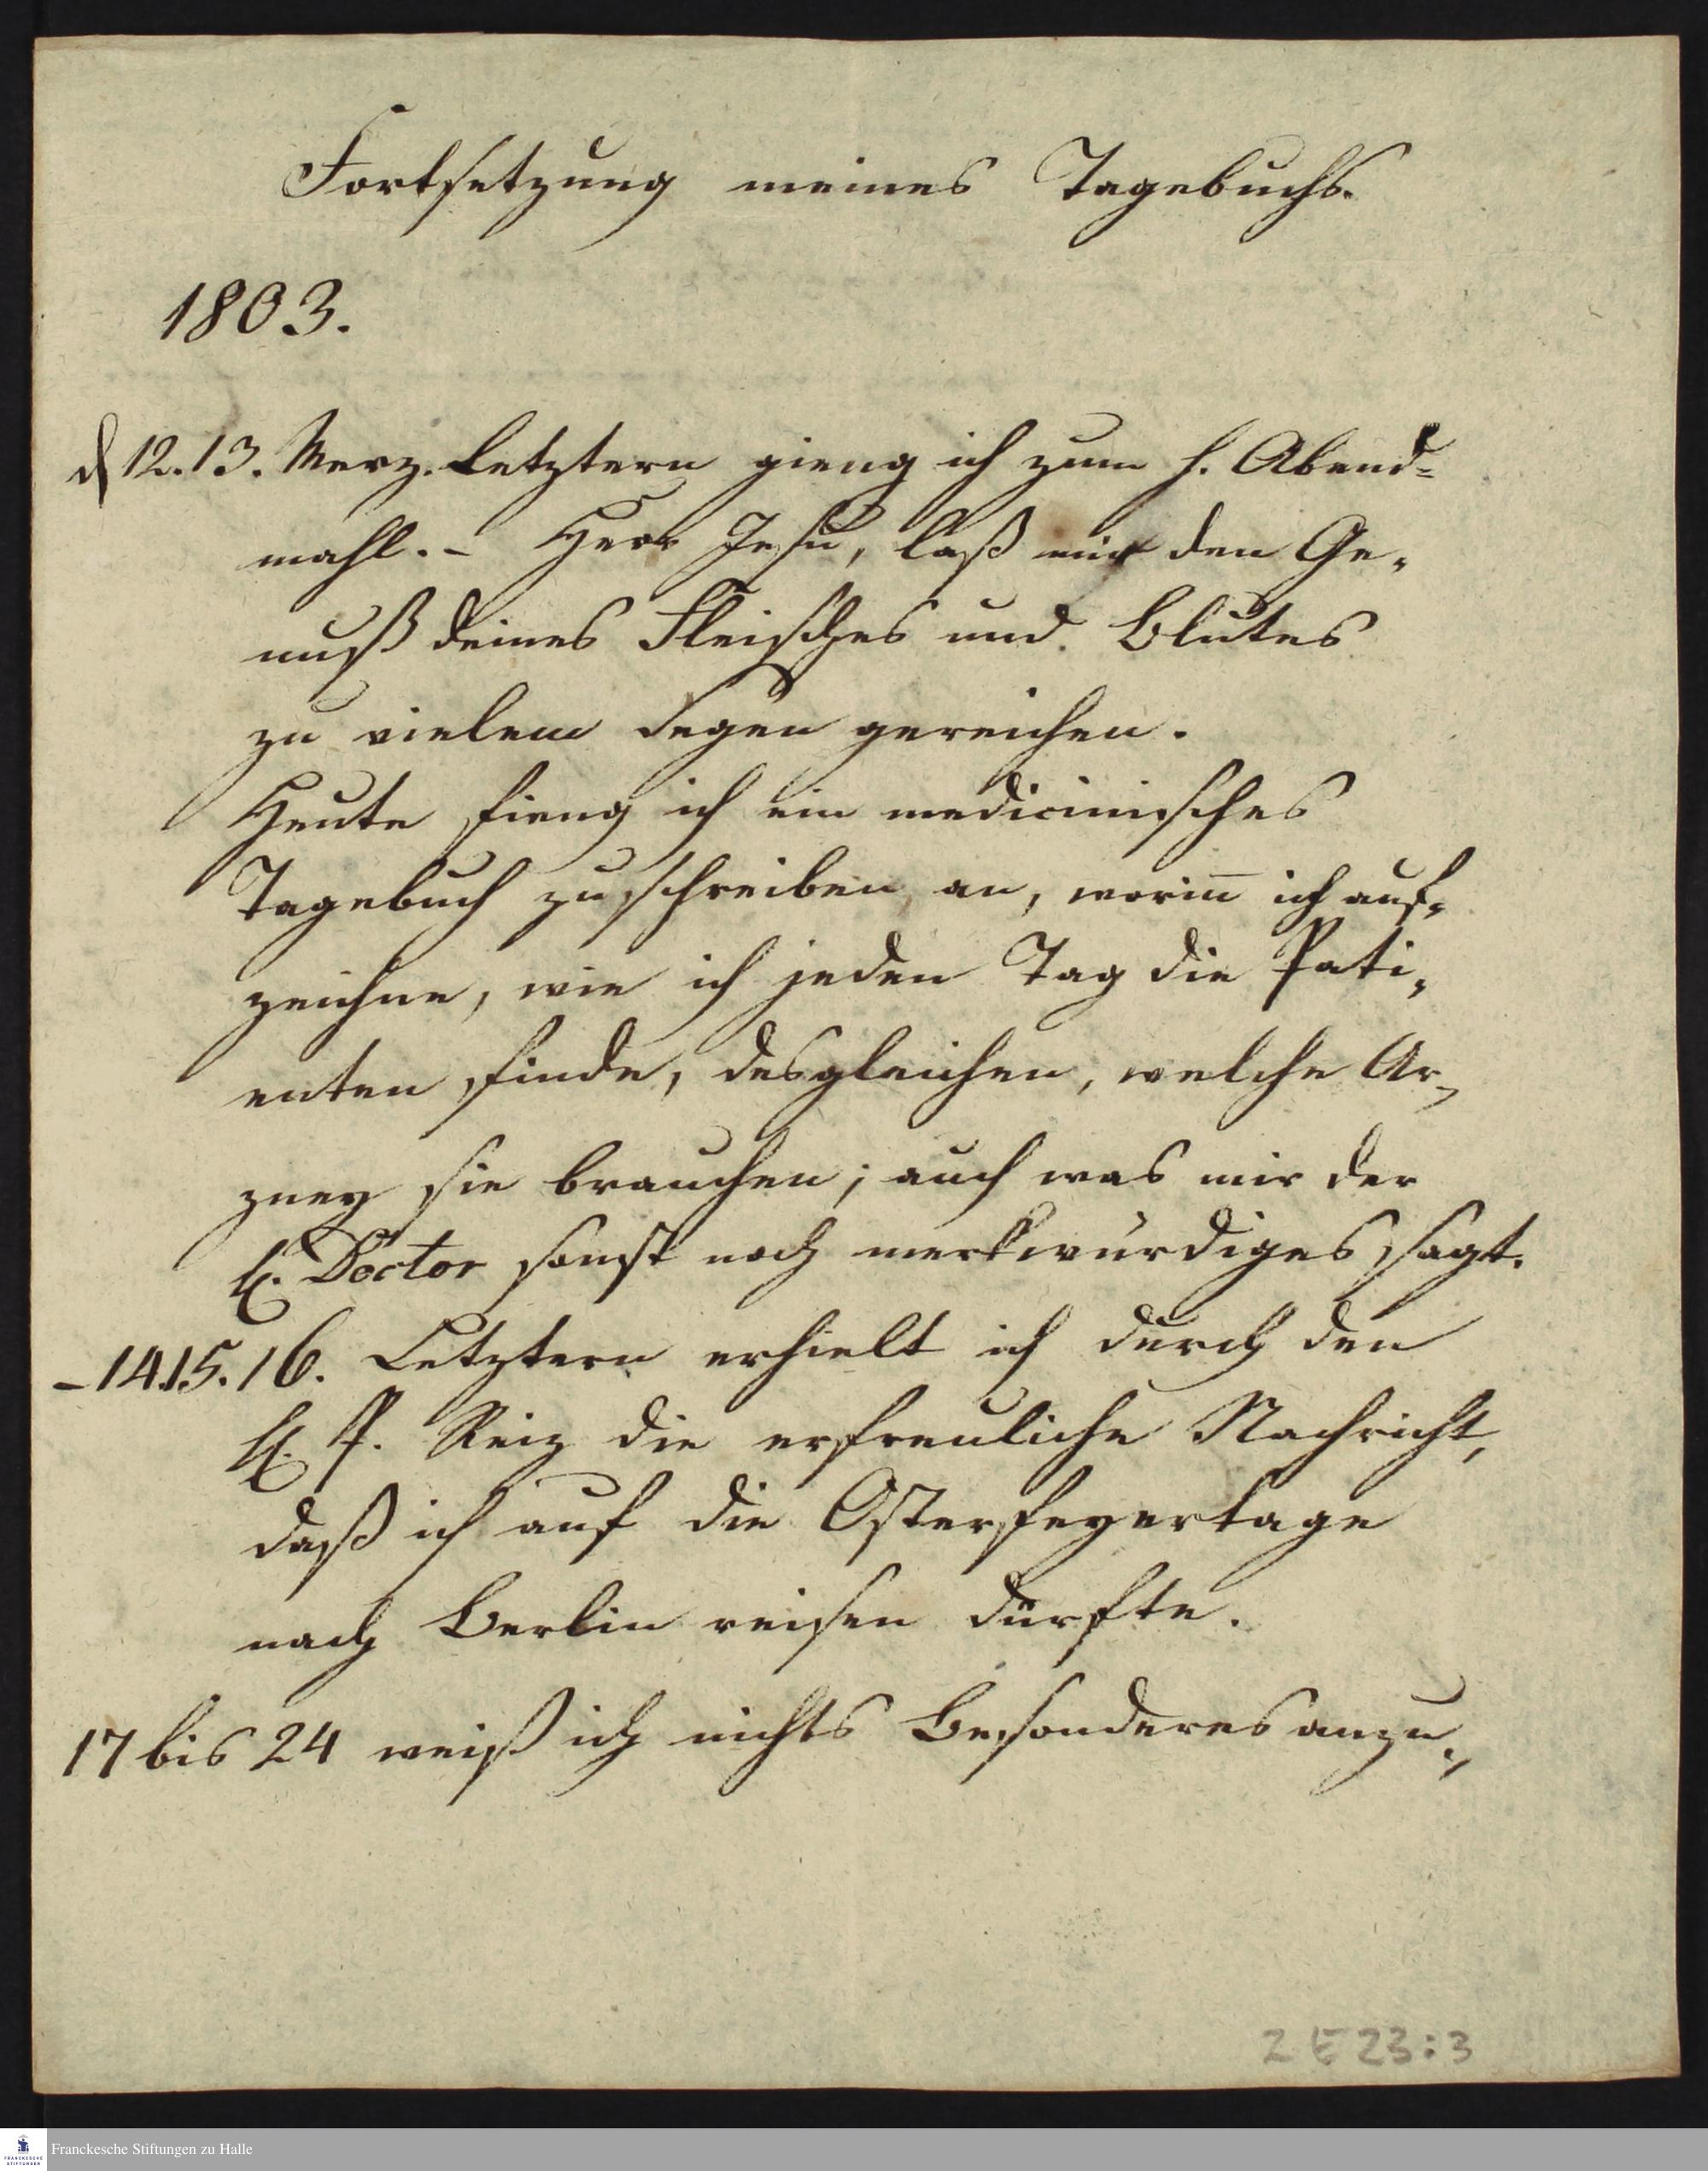 Fortsetzung meines Tagebuchs.
1803.
d 12. 13. Merz. Letztern gieng ich zum h. Abend=
mahl. – Herr Jesu, laß mir den Ge„
nuß deines Fleisches und Blutes
zu vielem Segen gereichen.
Heute fieng ich ein medicinisches
Tagebuch zu schreiben an, worin̅ ich auf„
zeichne, wie ich jeden Tag die Pati„
enten finde, desgleichen, welche Ar„
zney sie brauchen; auch was mir der
H. Doctor sonst noch merkwürdiges sagt.
– 14. 15. 16. Letztern erhielt ich durch den
H. P. Reiz die erfreuliche Nachricht,
daß ich auf die Osterfeyertage
nach Berlin reisen dürfte.
17 bis 24 weiß ich nichts Besonderes anzu„
Z E 23:3
FRANCKESCHE STIFTUNGEN
Franckesche Stiftungen zu Halle